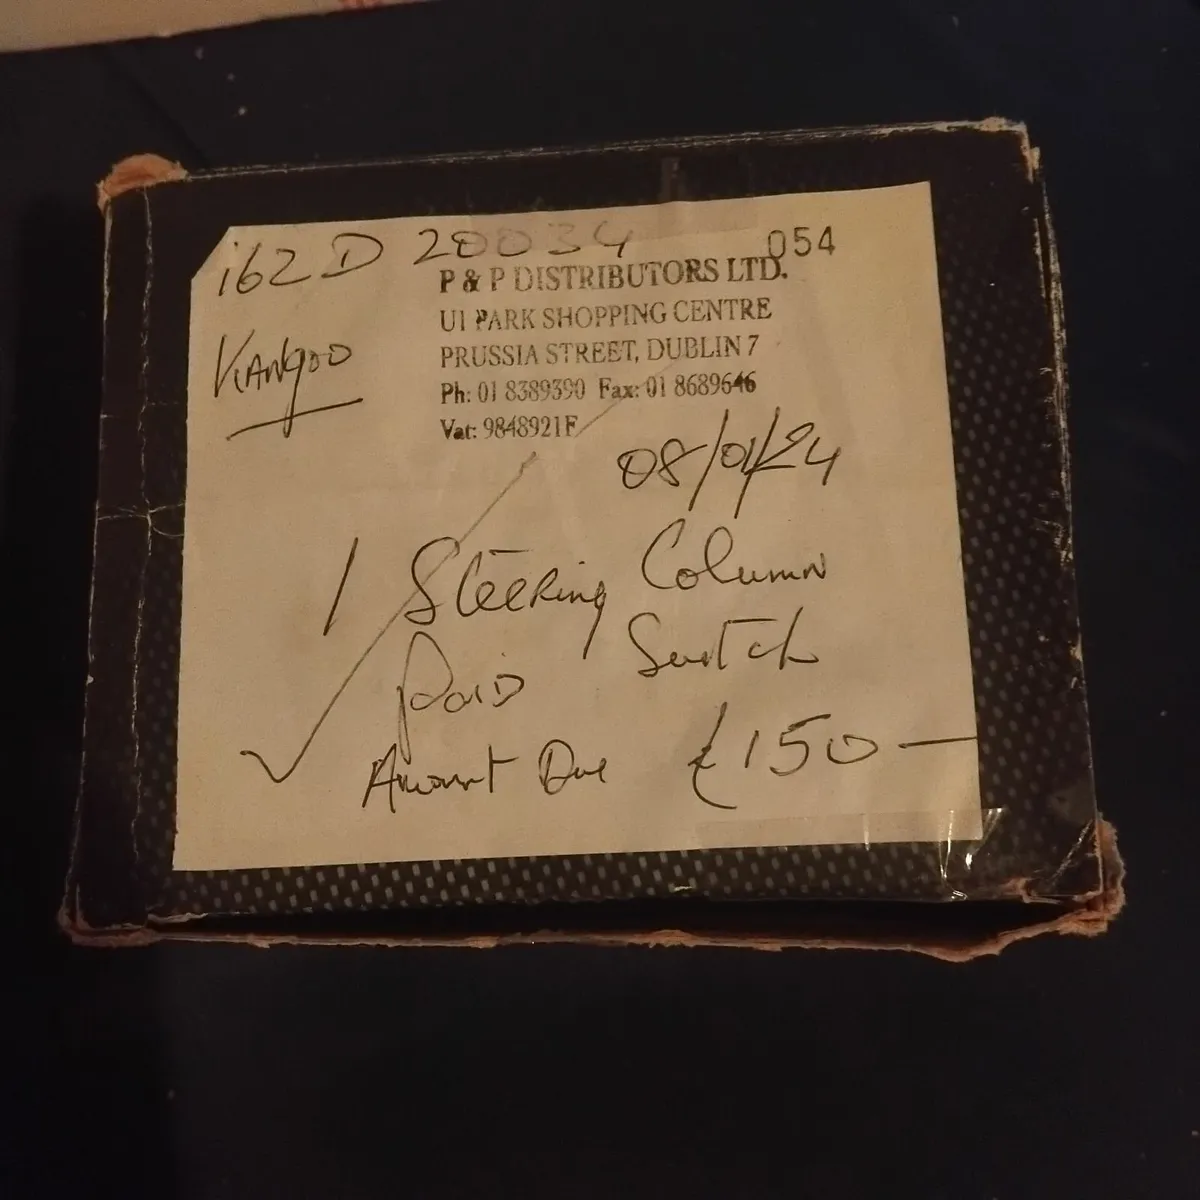 162 D 20034 054
P & P DISTRIBUTORS LTD.
U1 PARK SHOPPING CENTRE
Kangoo
PRUSSIA STREET, DUBLIN 7
Ph: 01 8389390 Fax: 01 8689646
Vat: 9848921F
08/01/24
1 Steering Column
Switch
Paid
Amount Due €150 —